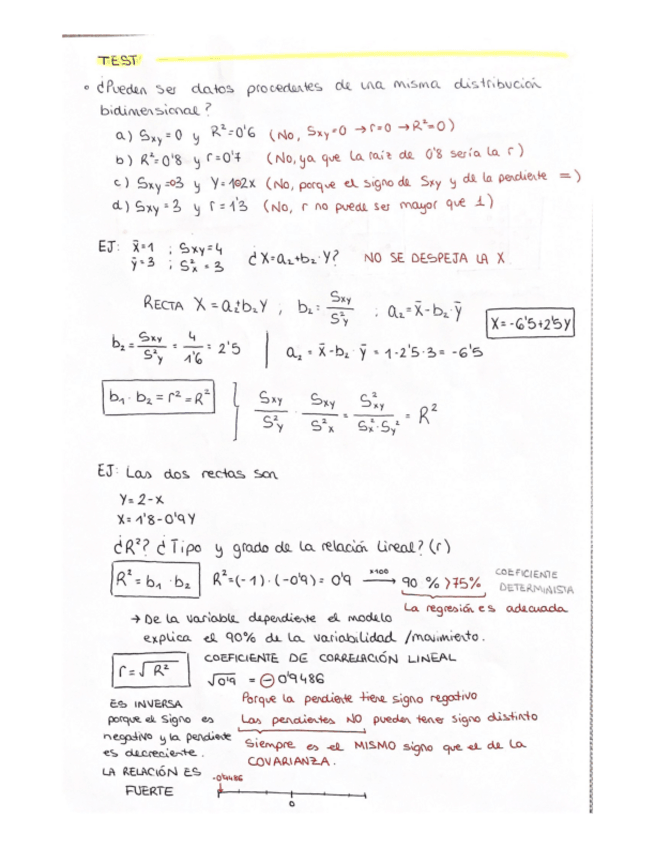 TEST
• ¿Pueden ser datos procedentes de una misma distribución
bidimensional?
a) Sxy = 0 y R²=0'6 (No, Sxy=0 → r=0 → R²=0)
b) R²=0'8 y r=0'7 (No, ya que la raiz de 0'8 sería la r)
c) Sxy=03 y Y=102x (No, porque el signo de Sxy y de la pendiente =)
d) Sxy = 3 y r = 1'3 (No, r no puede ser mayor que 1)
EJ: x̄=1 ; Sxy=4 ¿X=a₂+b₂·Y? NO SE DESPEJA LA X
ȳ=3 ; S²x = 3
RECTA X = a₂+b₂Y ; b₂ = Sxy/S²y ; a₂ = x̄-b₂·ȳ
X=-6'5+2'5Y
b₂ = Sxy/S²y = 4/1'6 = 2'5 | a₂ = x̄-b₂·ȳ = 1-2'5·3 = -6'5
b₁ · b₂ = r² = R² Sxy/S²y · Sxy/S²x = S²xy/S²x·Sy² = R²
EJ: Las dos rectas son
Y = 2-x
X = 1'8-0'9Y
¿R²? ¿Tipo y grado de la relación lineal? (r)
R² = b₁ · b₂ R²=(-1)·(-0'9) = 0'9 →x100 90 % >75% COEFICIENTE
DETERMINISTA
La regresión es adecuada
→ De la variable dependiente el modelo
explica el 90% de la variabilidad /movimiento.
r = √R² COEFICIENTE DE CORRELACIÓN LINEAL
√0'9 = -0'9486
ES INVERSA
porque el signo es
negativo y la pendiente
es decreciente.
Porque la pendiente tiene signo negativo
Las pendientes NO pueden tener signo distinto
Siempre es el MISMO signo que el de la
COVARIANZA.
LA RELACIÓN ES
FUERTE
-0'9486
0